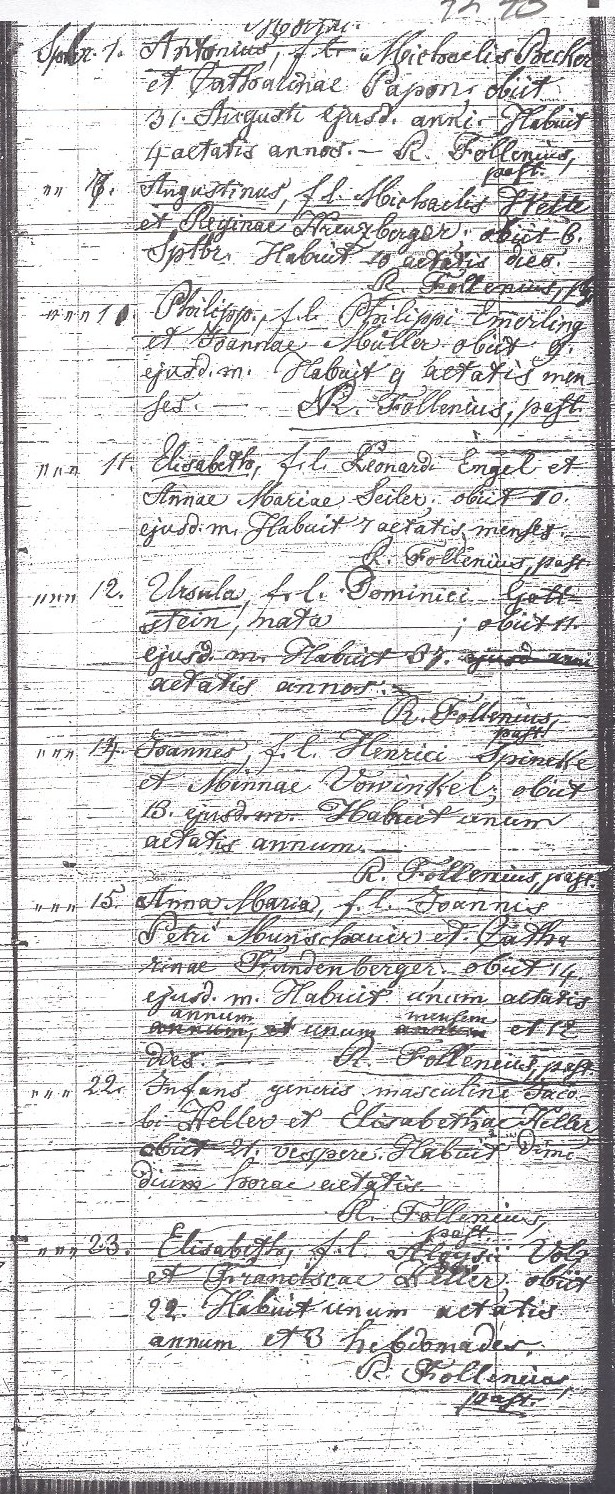 Mortui.
Sptbr. 1. Antonius, f. l. Michaelis Becker
et Catharinae Papon, obiit
31. Augusti ejusd. anni. Habuit
4 aetatis annos. — R. Follenius,
past.
" " 7. Augustinus, f. l. Michaelis
et Reginae Kreuzberger; obiit 6.
Sptbr. Habuit 10 aetatis dies.
R. Follenius, p.
" " " 10. Philipp., f. l. Philippi Emerling
et Joannae Müller obiit 9.
ejusd. m. Habuit 9 aetatis men
ses. — R. Follenius, past.
" " " 11. Elisabeth, f. l. Leonardi Engel et
Annae Mariae Seiler; obiit 10.
ejusd. m. Habuit 7 aetatis menses. —
R. Follenius, past.
" " " 12. Ursula, f. l. Dominici Gott
stein, nata ; obiit 11.
ejusd. m. Habuit 37. ejusd. anni
aetatis annos. —
R. Follenius,
past.
" " " 14. Joannes, f. l. Henrici Spineke
et Minnae Vowinkel; obiit
13. ejusd. m. Habuit unum
aetatis annum. —
R. Follenius, past.
" " " 15. Anna Maria, f. l. Joannis
Petri Munschauer et Catha
rinae Frundenberger; obiit 14
ejusd. m. Habuit unum aetatis
annum mensem
annum, et unum et 12
dies. — R. Follenius, past.
" " " 22. Infans generis masculini Jaco
bi Heller et Elisabethae Heller
obiit 21. vespere. Habuit dimi
dium horae aetatis.
R. Follenius,
past.
" " " 23. Elisabeth, f. l. Aloysii Volz
et Franciscae Heller, obiit
22. Habuit unum aetatis
annum et 3 hebdomades.
R. Follenius,
past.